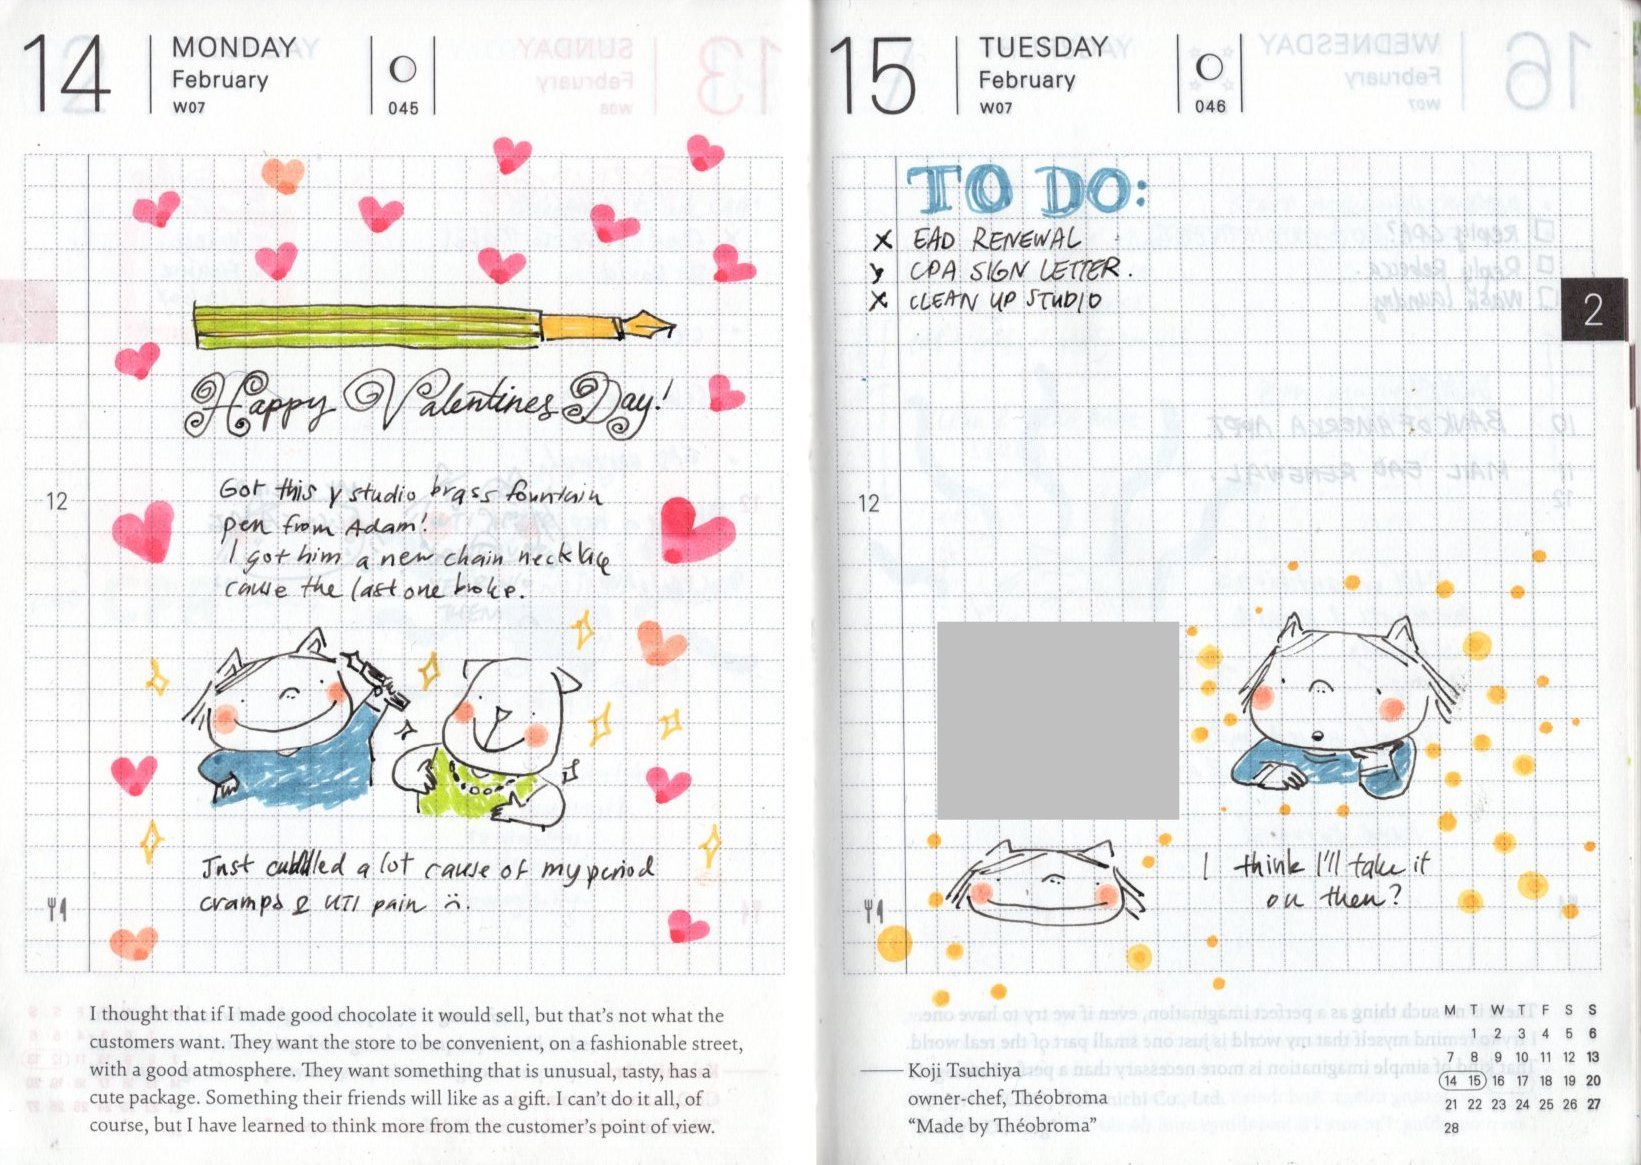 14
MONDAY
February
W07
045
Happy Valentines Day!
12
Got this y studio brass fountain
pen from Adam!
I got him a new chain necklace
cause the last one broke.
Just cuddled a lot cause of my period
cramps & UTI pain :(.
I thought that if I made good chocolate it would sell, but that’s not what the
customers want. They want the store to be convenient, on a fashionable street,
with a good atmosphere. They want something that is unusual, tasty, has a
cute package. Something their friends will like as a gift. I can’t do it all, of
course, but I have learned to think more from the customer’s point of view.
15
TUESDAY
February
W07
046
TO DO:
x EAD RENEWAL
x CPA SIGN LETTER.
x CLEAN UP STUDIO
2
12
I think I'll take it
on then?
Koji Tsuchiya
owner-chef, Théobroma
“Made by Théobroma”
M T W T F S S
1 2 3 4 5 6
7 8 9 10 11 12 13
14 15 16 17 18 19 20
21 22 23 24 25 26 27
28